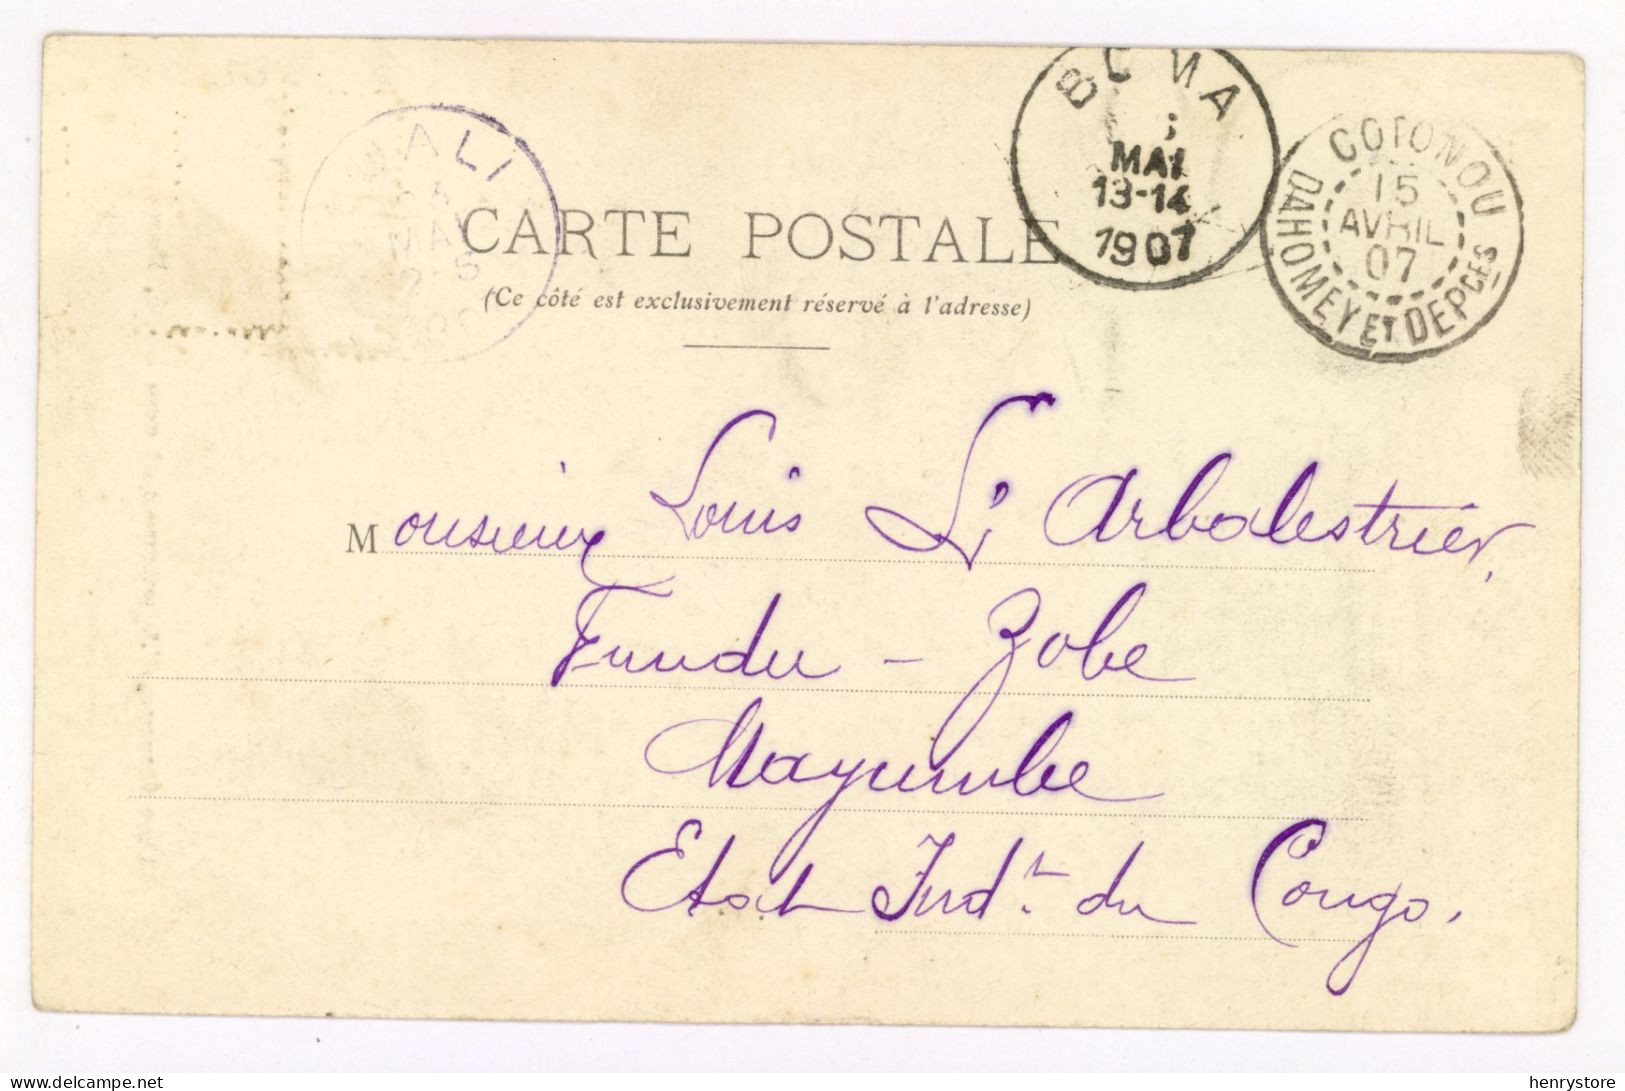 BOMA
MAI
13-14
1907
COTONOU
15
AVRIL
07
DAHOMEY ET DEPCES
CARTE POSTALE
(Ce côté est exclusivement réservé à l'adresse)
Monsieur Louis L'Arbalestrier,
Fundu - Zobe
Mayumbe
Etat Indt. du Congo.
delcampe.net
henrystore